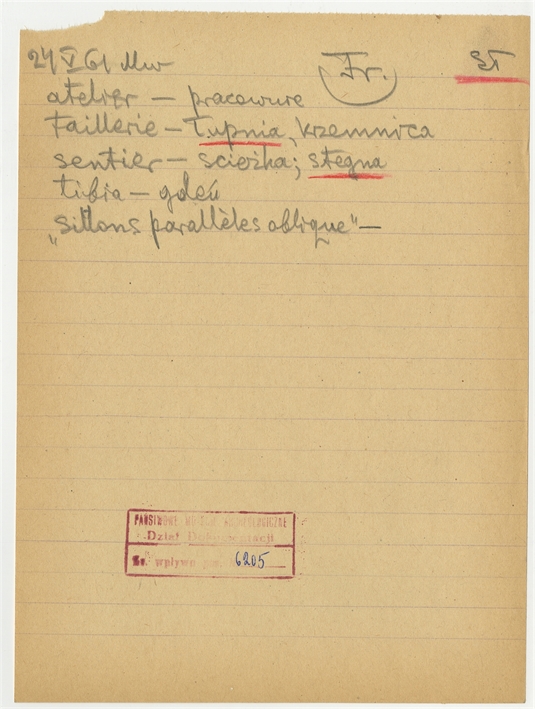 24 V 61 Mw Fr. ST
atelier – pracowure
taillerie – łupnia, krzemnica
sentier – scieżka; stegna
tibia – gdeń
„sillons parallèles oblique" –
PAŃSTWOWE MUZEUM ARCHEOLOGICZNE
Dział Dokumentacji
Nr. wpływu 6205